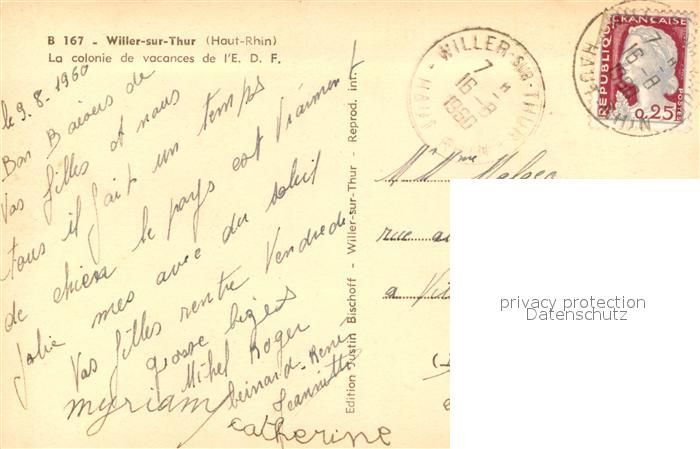 B 167 - Willer-sur-Thur (Haut-Rhin)
La colonie de vacances de l'E. D. F.
le 9.8.1960
Bon Baisers de
Vas filles et nous
tous il fait un temps
de chien le pays est Vraiment
Jolie mes avec du soleil
Vas filles rentre Vendredi
grosse bises
Mihel Roger
myriam bernard René
Jeannette
catherine
Edition Justin Bischoff - Willer-sur-Thur - Reprod. int.
WILLER-SUR-THUR
HAUT-RHIN
7 H
16-8
1960
RÉPUBLIQUE FRANÇAISE
POSTES
0,25
HAUT-RHIN
7 H
16-8
1960
Mr Mme
rue
a
privacy protection
Datenschutz